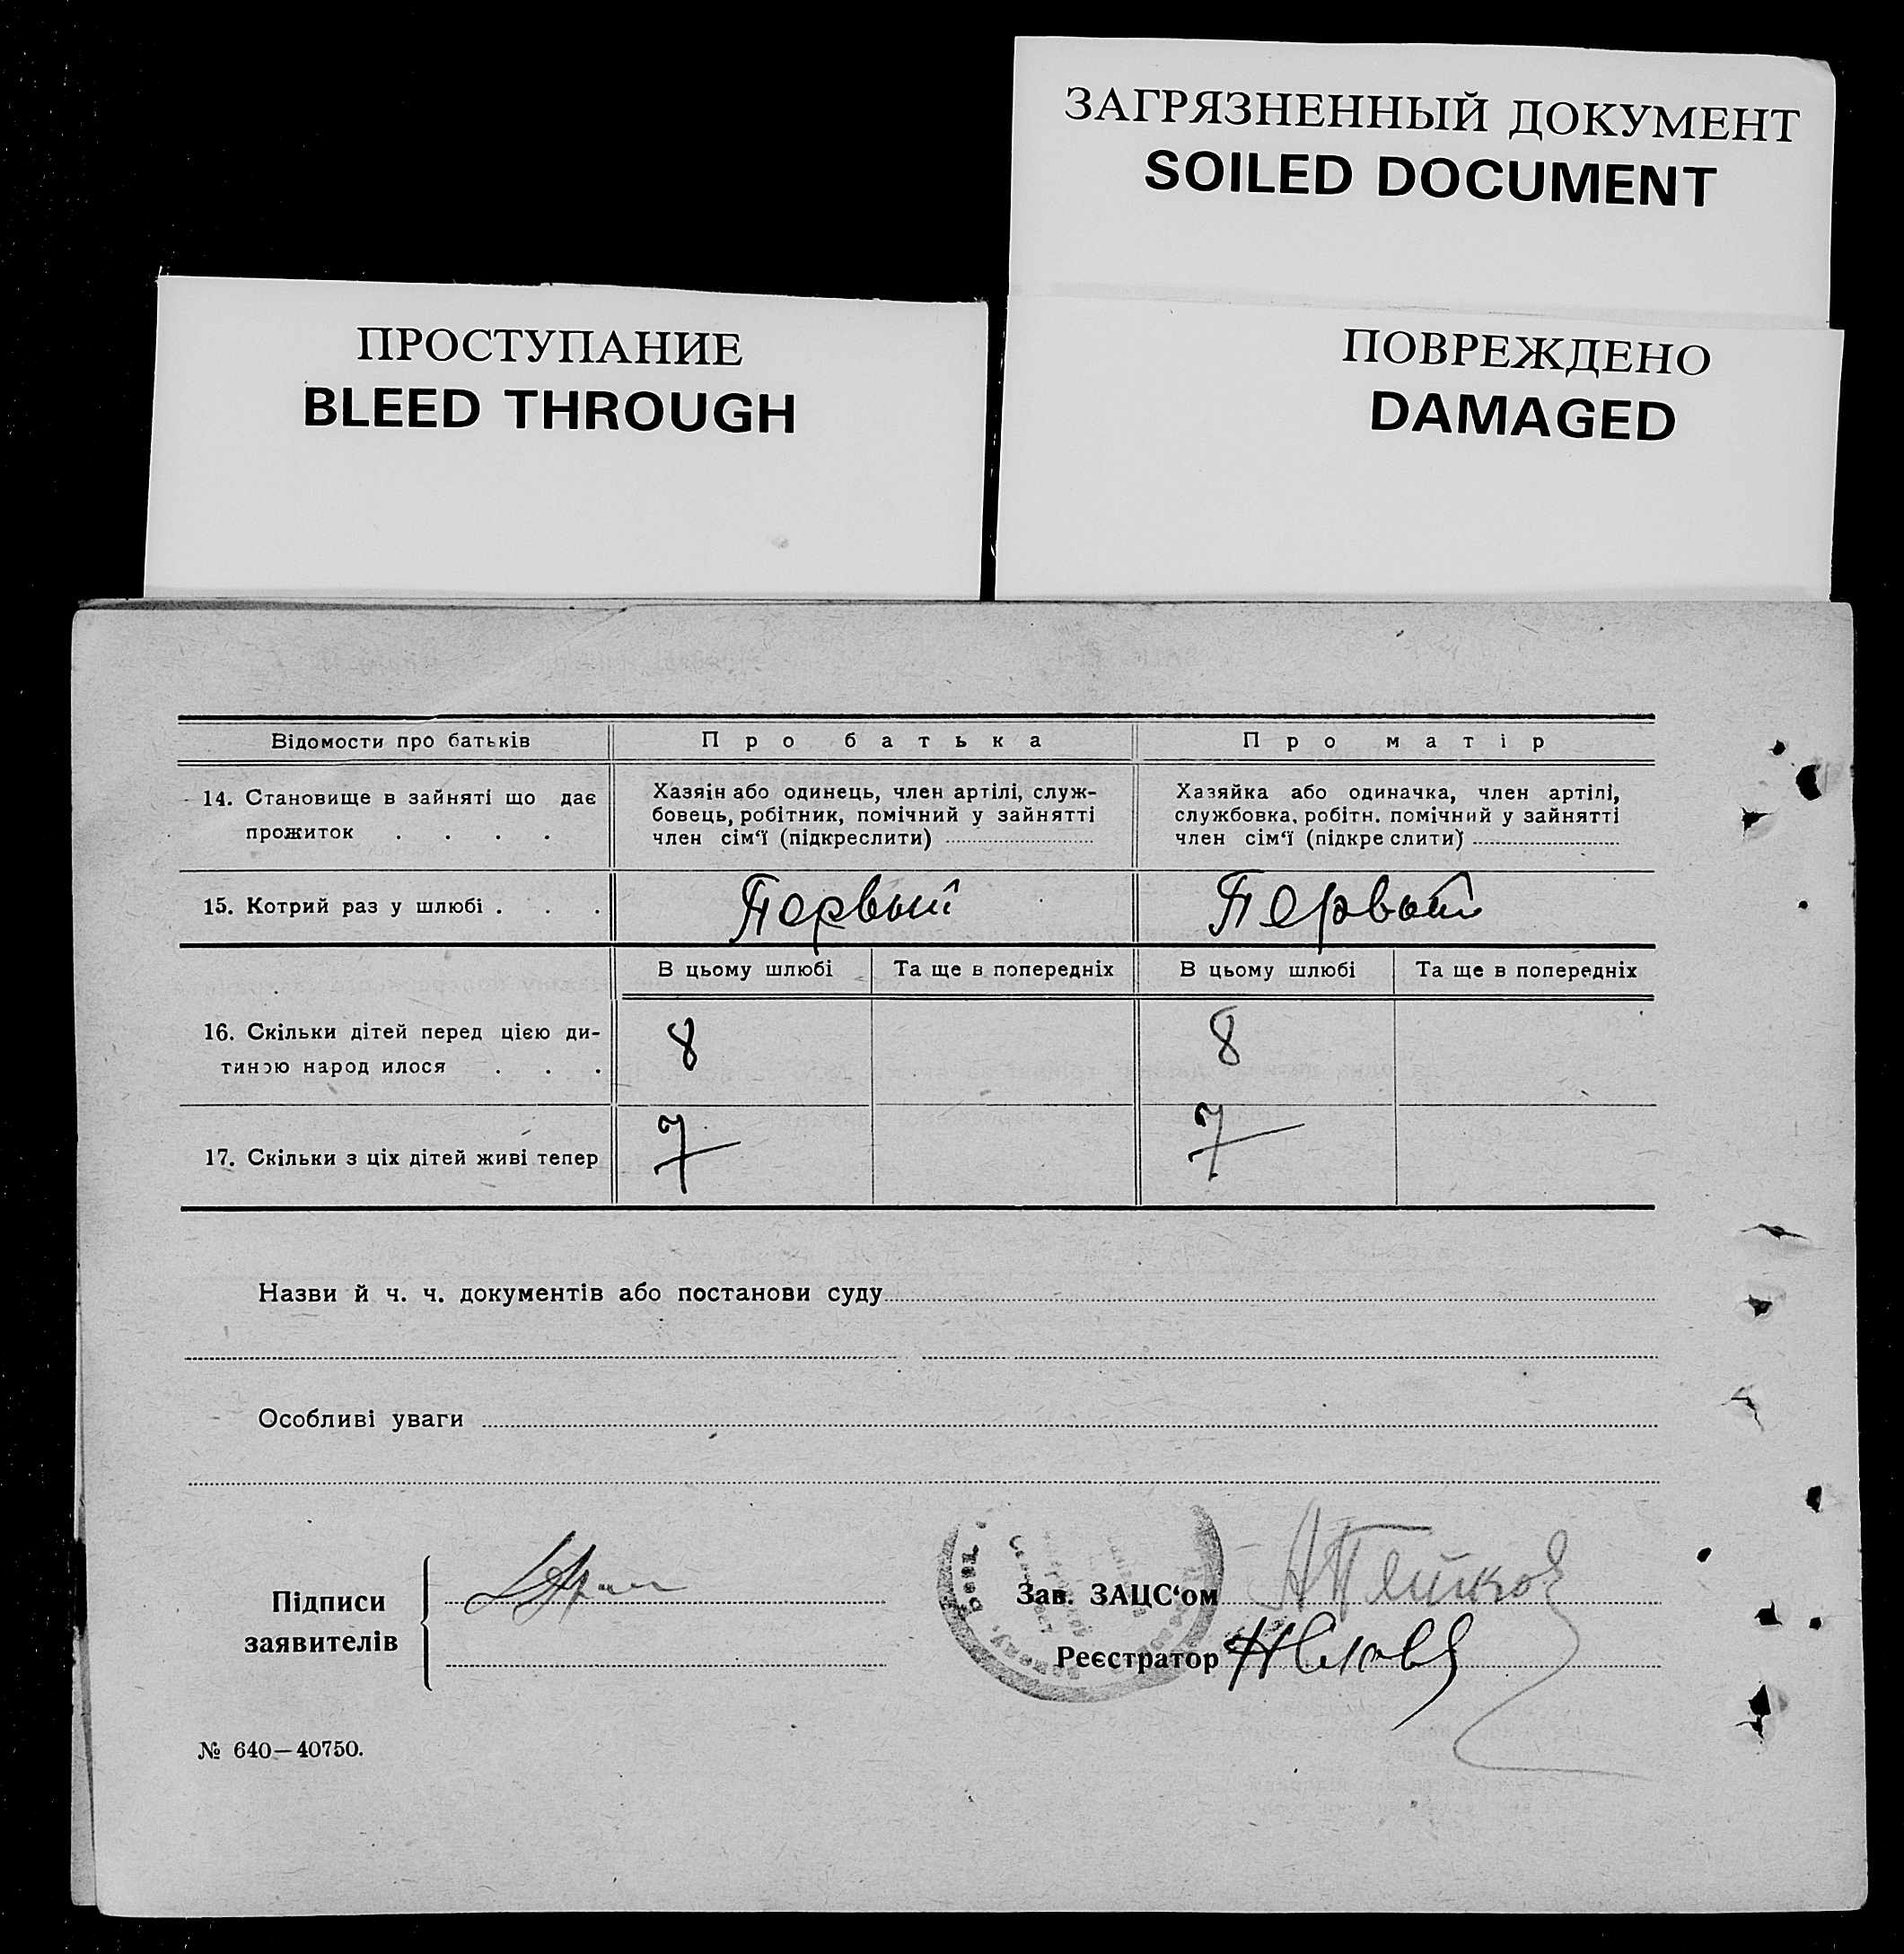 ЗАГРЯЗНЕННЫЙ ДОКУМЕНТ
SOILED DOCUMENT
ПРОСТУПАНИЕ
BLEED THROUGH
ПОВРЕЖДЕНО
DAMAGED
Відомости про батьків
Про батька
Про матір
14. Становище в зайняті що дає
прожиток . . . .
Хазяін або одинець, член артілі, служ-
бовець, робітник, помічний у зайнятті
член сім‘ї (підкреслити)
Хазяйка або одиначка, член артілі,
службовка, робітн. помічний у зайнятті
член сім‘ї (підкре слити)
15. Котрий раз у шлюбі . . .
Первый
Первый
В цьому шлюбі
Та ще в попередніх
В цьому шлюбі
Та ще в попередніх
16. Скільки дітей перед цією ди-
тиною народ илося . . .
8
8
17. Скільки з ціх дітей живі тепер
7
7
Назви й ч. ч. документів або постанови суду
Особливі уваги
Підписи
заявителів
Зав. ЗАЦС‘ом
Реєстратор
№ 640—40750.